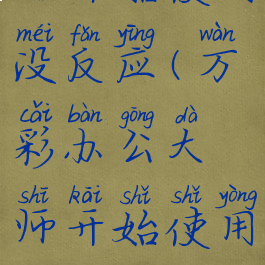 méi fǎn yīng wàn
没反应(万
cǎi bàn gōng dà
彩办公大
shī kāi shǐ shǐ yòng
师开始使用